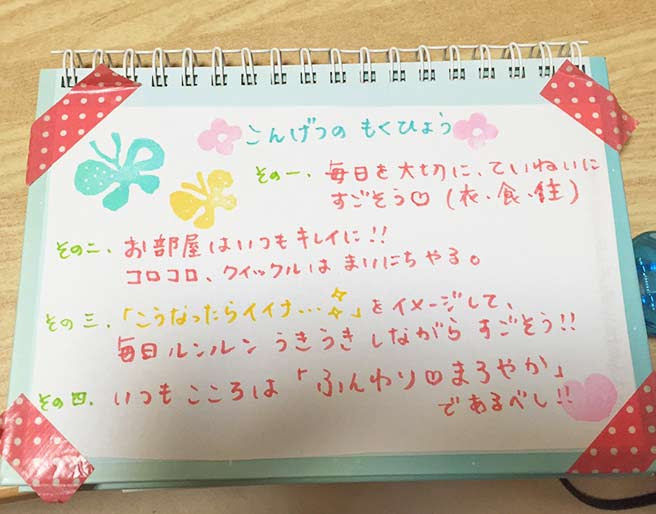 こんげつの もくひょう
その一、毎日を大切に、ていねいに
すごそう♡(衣、食、住)
その二、お部屋はいつもキレイに!!
コロコロ、クイックルは まいにちやる。
その三、「こうなったらイイナ…✧」をイメージして、
毎日ルンルン うきうき しながら すごそう!!
その四、いつも こころは 「ふんわり♡まろやか」
であるべし!!